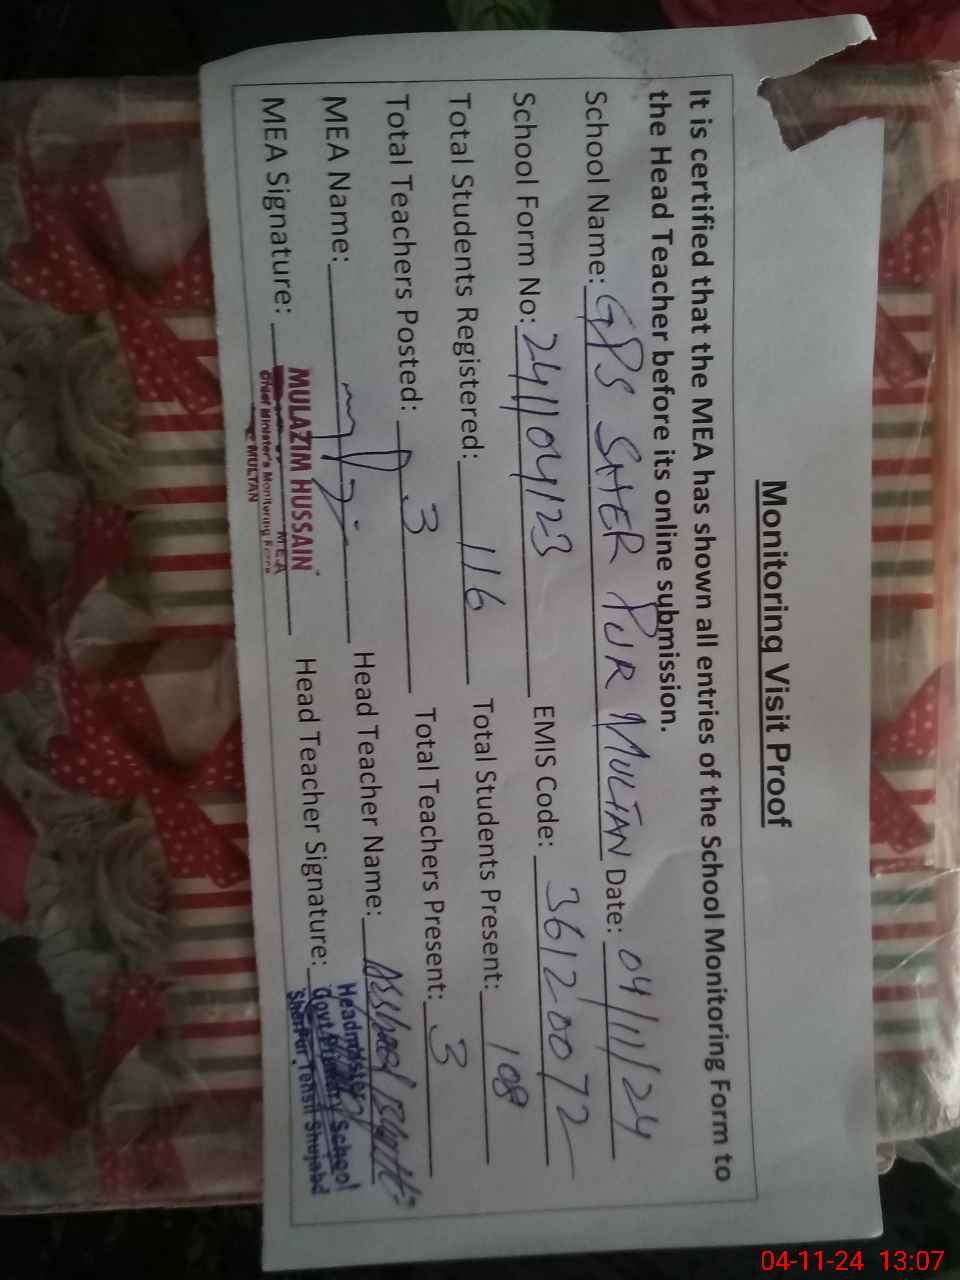 Monitoring Visit Proof
It is certified that the MEA has shown all entries of the School Monitoring Form to
the Head Teacher before its online submission.
School Name: GPS SHER PUR MULTAN Date: 04/11/24
School Form No: 241104123 EMIS Code: 36120072
Total Students Registered: 116 Total Students Present: 108
Total Teachers Posted: 3 Total Teachers Present: 3
MEA Name: Head Teacher Name:
MEA Signature: Head Teacher Signature:
MULAZIM HUSSAIN
M.E.A
Chief Minister's Monitoring Force
MULTAN
Headmaster
Govt. Primary School
Sher Pur Tehsil Shujabad
04-11-24 13:07